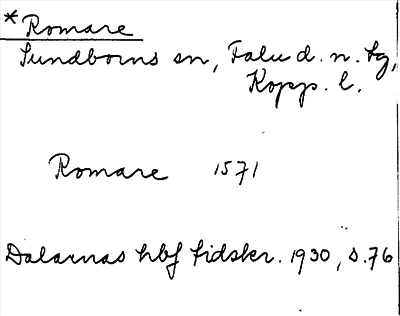 *Romare
Sundborns sn, Falu d. n. tg,
Kopp. l.
Romare 1571
Dalarnas hbf tidskr. 1930, s. 76